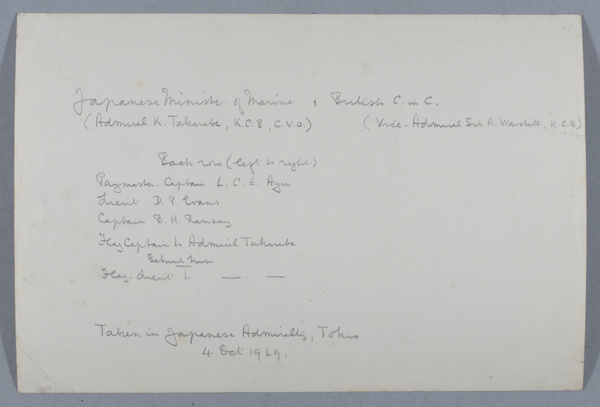 Japanese Ministe of Marine & British C. in C.
(Admiral K. Takarabe, K.C.B, C.V.O.) (Vice-Admiral Sir A. Waistell, K.C.B)
Back row (left to right)
Paymaster Captain L. C. E. Ayre
Lieut D. P. Evans
Captain B. H. Ramsay
Flag Captain to Admiral Takarabe
Behind him
Flag-Lieut to — —
Taken in Japanese Admiralty, Tokio
4 Oct 1929.